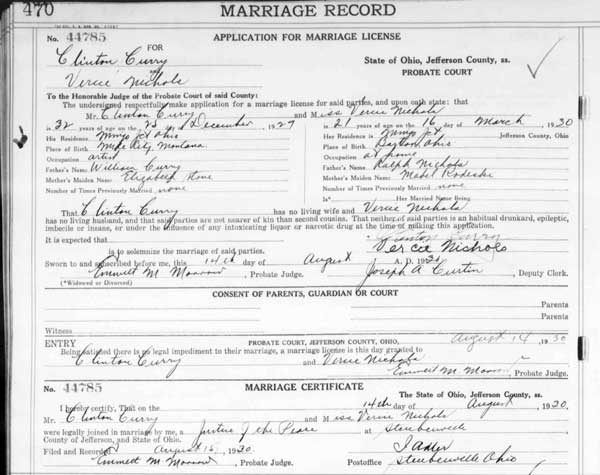 470 MARRIAGE RECORD
No. 44785 APPLICATION FOR MARRIAGE LICENSE
Clinton Curry FOR State of Ohio, Jefferson County, ss.
Vercie Nichols PROBATE COURT
To the Honorable Judge of the Probate Court of said County:
The undersigned respectfully make application for a marriage license for said parties, and upon oath state: that
Mr. Clinton Curry and Miss Vercie Nichols
is 32 years of age on the day of December 1929 is 21 years of age on the 16 day of March 1930
His Residence Mingo Jct Ohio Her Residence is Mingo Jct Jefferson County, Ohio
Place of Birth Mile City, Montana Place of Birth Dayton Ohio
Occupation artist Occupation at home
Father's Name William Curry Father's Name Ralph Nichols
Mother's Maiden Name Elizabeth Mother's Maiden Name Mabel
Number of Times Previously Married none Number of Times Previously Married none
Is* Her Married Name Being
That Clinton Curry has no living wife and Vercie Nichols
has no living husband, and that said parties are not nearer of kin than second cousins. That neither of said parties is an habitual drunkard, epileptic,
imbecile or insane, or under the influence of any intoxicating liquor or narcotic drug at the time of making this application.
Clinton Curry
It is expected that Vercie Nichols
is to solemnize the marriage of said parties.
Sworn to and subscribed before me, this 14th day of August A. D. 1930
Emmett M Morrow, Probate Judge. Joseph A. Curtin, Deputy Clerk.
(*Widowed or Divorced)
CONSENT OF PARENTS, GUARDIAN OR COURT
Parents
Parents
Witness
ENTRY PROBATE COURT, JEFFERSON COUNTY, OHIO, August 14, 1930
Being satisfied there is no legal impediment to their marriage, a marriage license is this day granted to
Clinton Curry and Vercie Nichols
Emmett M Morrow, Probate Judge.
No. 44785 MARRIAGE CERTIFICATE
The State of Ohio, Jefferson County, ss.
I hereby certify, That on the 14th day of August, 1930.
Mr. Clinton Curry and Miss Vercie Nichols
were legally joined in marriage by me, a Justice of the Peace at Steubenville
County of Jefferson, and State of Ohio.
Filed and Recorded August 15, 1930.
Emmett M Morrow Probate Judge Postoffice: Steubenville Ohio